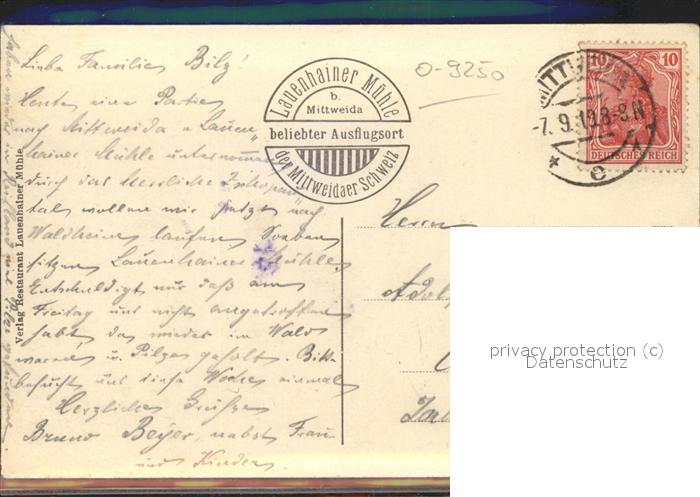 Liebe Familie Bilz!
Heute eine Partie
nach Mittweida u Lauen-
hainer Mühle unternommen
durch das herrliche Zschopau
tal wollen wir jetzt nach
Waldheim laufen, Soeben
sitzen Lauenhainer Mühle,
Entschuldigt nur daß am
Freitag uns nicht angetroffen
habt, da wieder im Wald
waren u. Pilze geholt. Bitte
besucht uns diese Woche einmal
Herzliche Grüße
Bruno Beyer, nebst Frau
und Kinder
Verlag Restaurant Lauenhainer Mühle
Lauenhainer Mühle
b.
Mittweida
beliebter Ausflugsort
der Mittweidaer Schweiz
0-9250
10 10
DEUTSCHES REICH
-7.9.19.8-9N
* c
Herrn
Adol
privacy protection (c)
Datenschutz